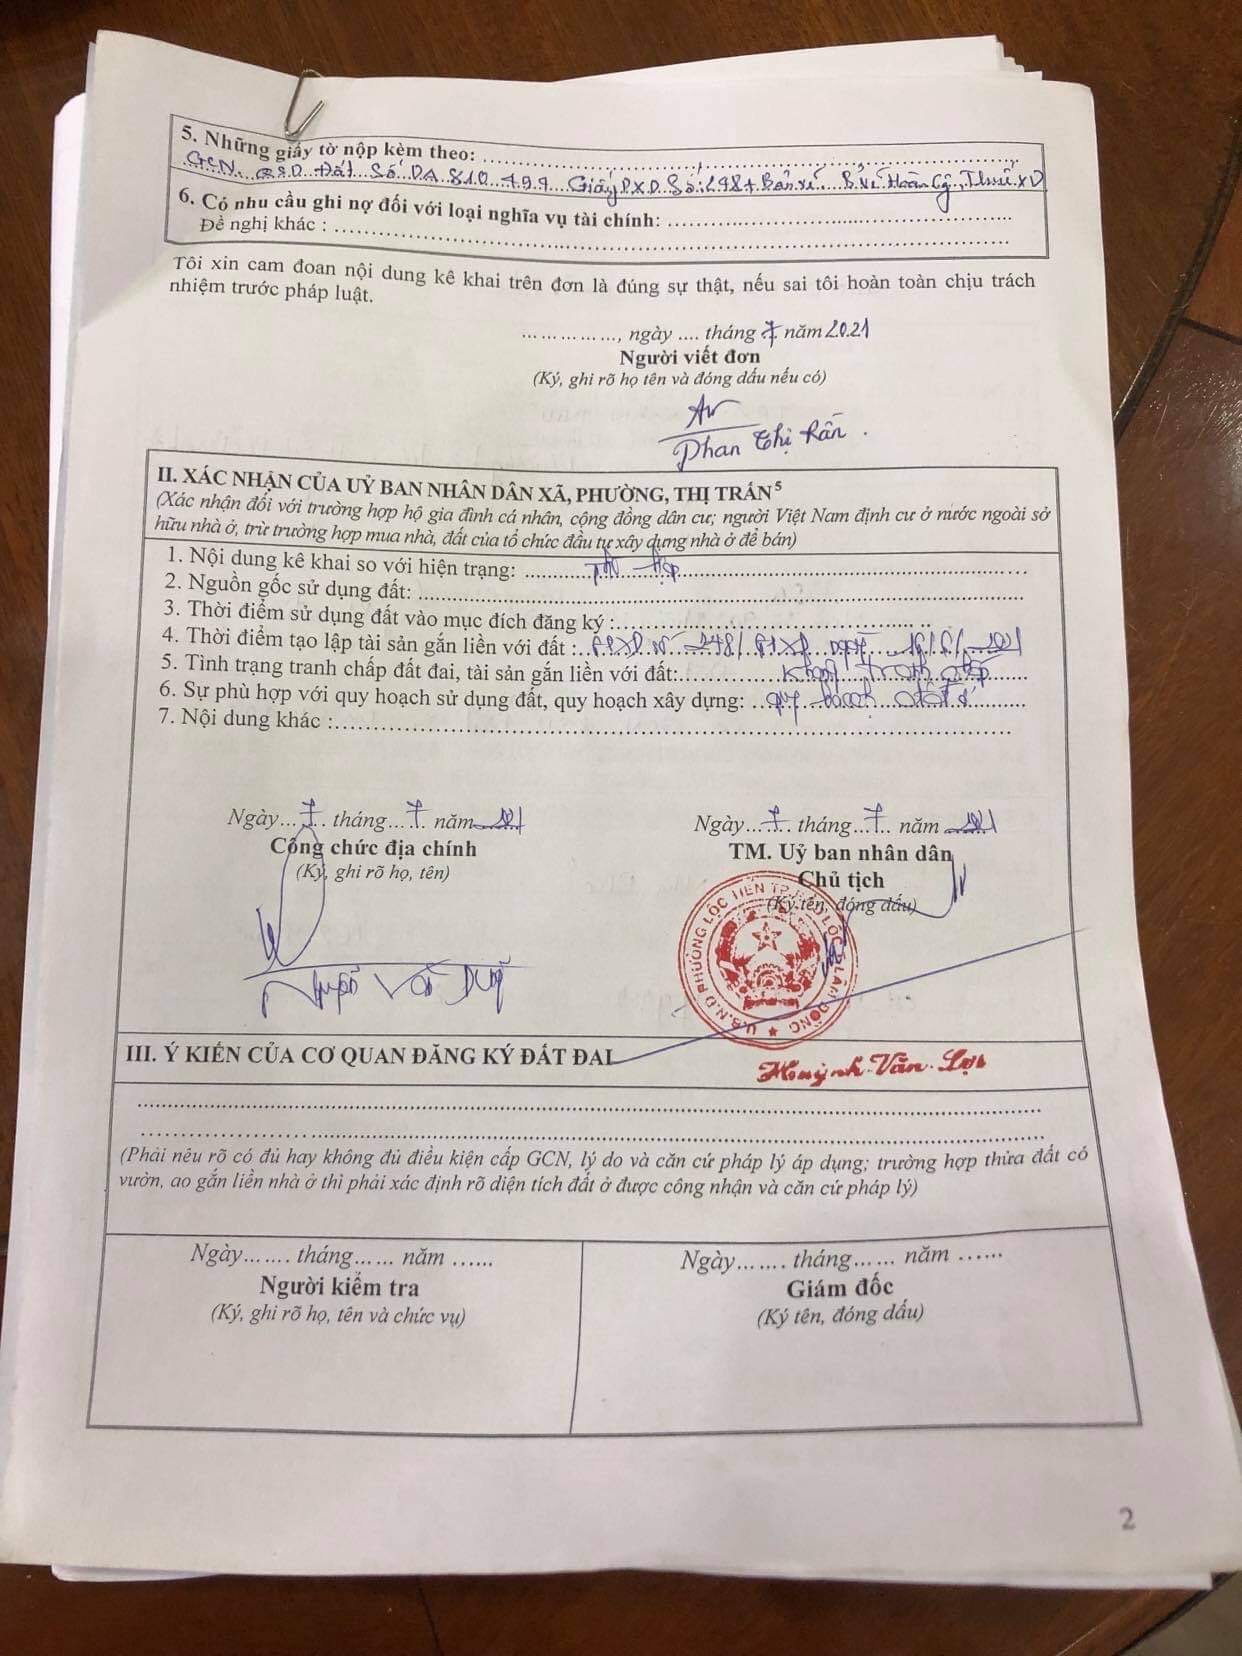 5. Những giấy tờ nộp kèm theo: ...........
GCN. QSD. Đất Số DA 810 499 Giấy PXD. Số: 248 + Bản vẽ. B.Vẽ Hoàn Cg, Thuế XD
6. Có nhu cầu ghi nợ đối với loại nghĩa vụ tài chính: ...........
Đề nghị khác : ...........
Tôi xin cam đoan nội dung kê khai trên đơn là đúng sự thật, nếu sai tôi hoàn toàn chịu trách
nhiệm trước pháp luật.
..............., ngày .... tháng 7 năm 2021
Người viết đơn
(Ký, ghi rõ họ tên và đóng dấu nếu có)
Phan Thị
II. XÁC NHẬN CỦA UỶ BAN NHÂN DÂN XÃ, PHƯỜNG, THỊ TRẤN⁵
(Xác nhận đối với trường hợp hộ gia đình cá nhân, cộng đồng dân cư; người Việt Nam định cư ở nước ngoài sở
hữu nhà ở, trừ trường hợp mua nhà, đất của tổ chức đầu tư xây dựng nhà ở để bán)
1. Nội dung kê khai so với hiện trạng: phù hợp
2. Nguồn gốc sử dụng đất: ...........
3. Thời điểm sử dụng đất vào mục đích đăng ký :...........
4. Thời điểm tạo lập tài sản gắn liền với đất : 248/ ngày 2021
5. Tình trạng tranh chấp đất đai, tài sản gắn liền với đất: không tranh chấp
6. Sự phù hợp với quy hoạch sử dụng đất, quy hoạch xây dựng: quy hoạch đất ở
7. Nội dung khác :...........
Ngày...7... tháng...7... năm 2021 Ngày...7... tháng...7... năm 2021
Công chức địa chính TM. Uỷ ban nhân dân
(Ký, ghi rõ họ, tên) Chủ tịch
(Ký tên, đóng dấu)
U.B.N.D PHƯỜNG LỘC TIẾN TP. BẢO LỘC T. LÂM ĐỒNG
Nguyễn Văn Dũng
Huỳnh Văn Lợi
III. Ý KIẾN CỦA CƠ QUAN ĐĂNG KÝ ĐẤT ĐAI
...........
...........
(Phải nêu rõ có đủ hay không đủ điều kiện cấp GCN, lý do và căn cứ pháp lý áp dụng; trường hợp thửa đất có
vườn, ao gắn liền nhà ở thì phải xác định rõ diện tích đất ở được công nhận và căn cứ pháp lý)
Ngày....... tháng...... năm ...... Ngày....... tháng...... năm ......
Người kiểm tra Giám đốc
(Ký, ghi rõ họ, tên và chức vụ) (Ký tên, đóng dấu)
2